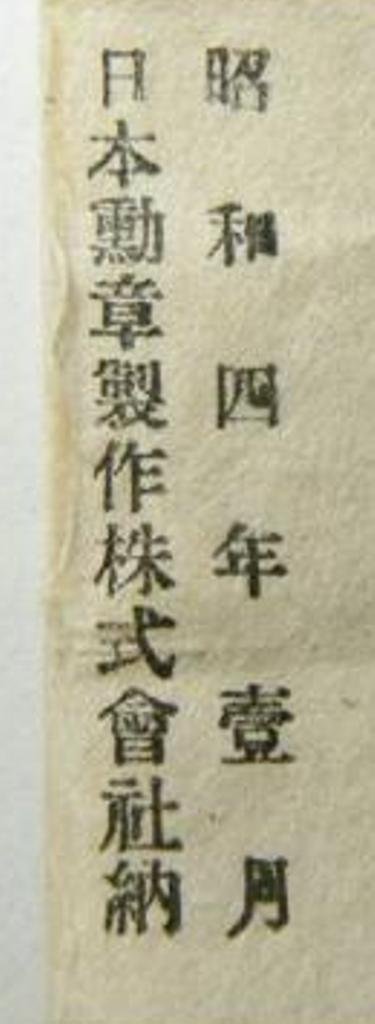 昭和四年壹月
日本勳章製作株式會社納